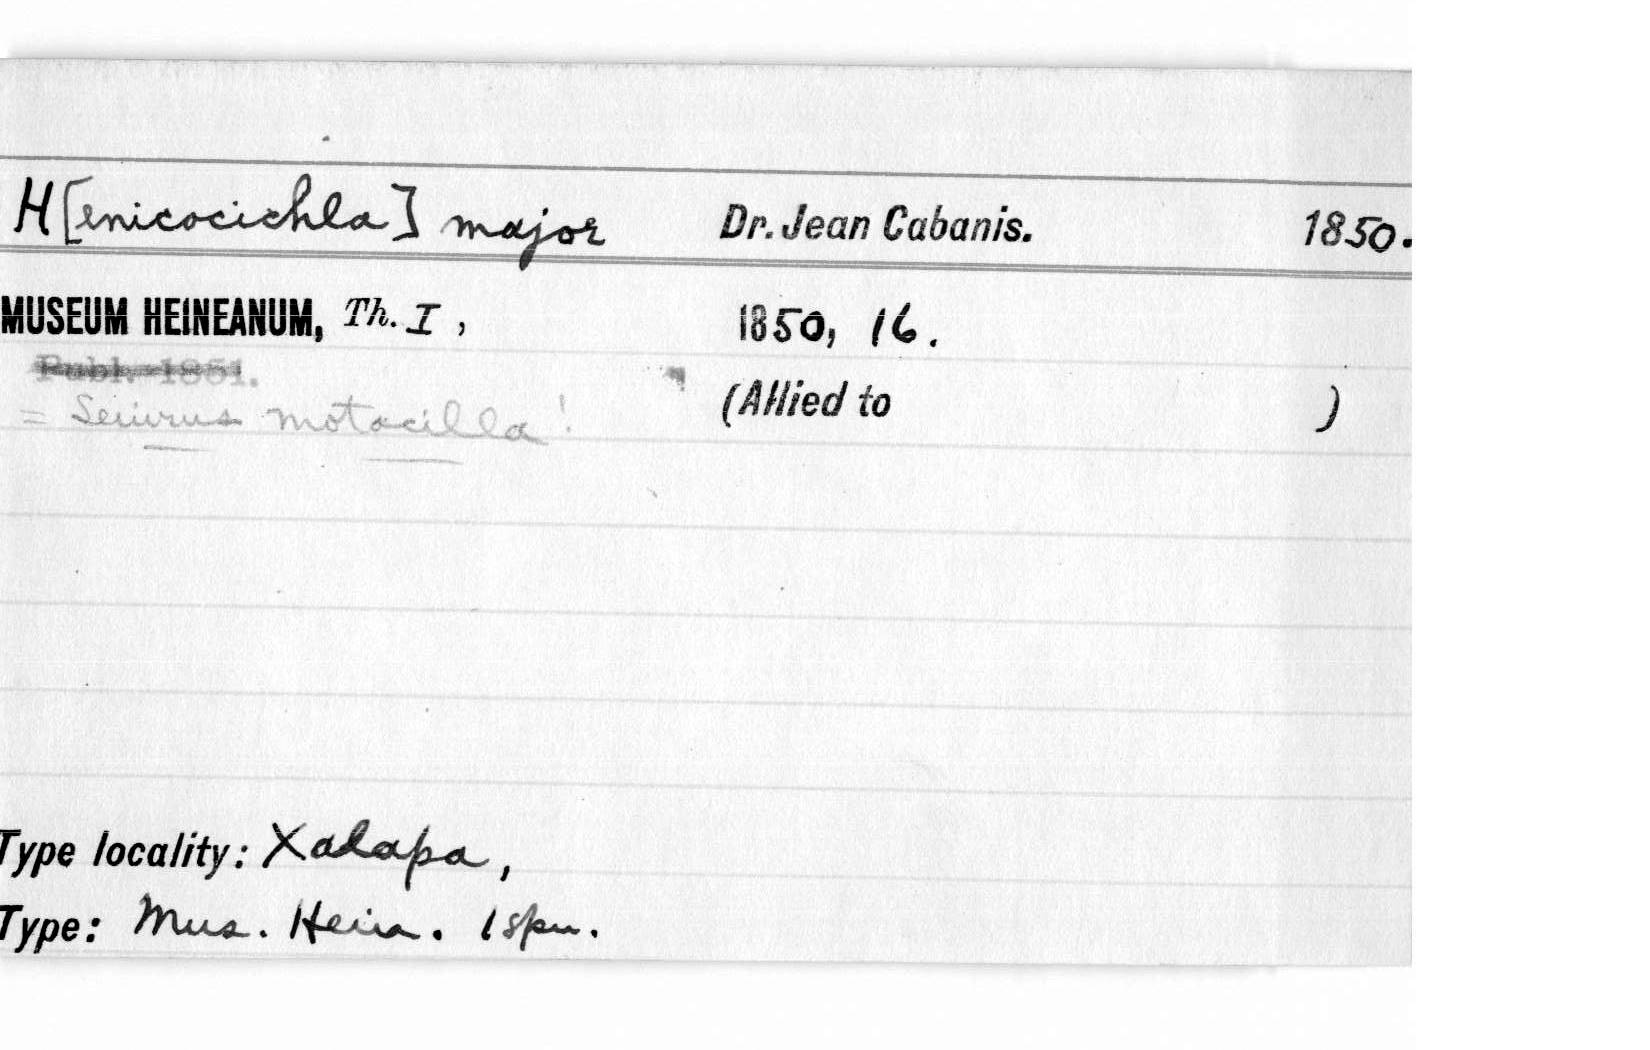 H[enicocichla] major Dr. Jean Cabanis. 1850.
MUSEUM HEINEANUM, Th. I, 1850, 16.
Publ. 1851.
= Seiurus motacilla! (Allied to )
Type locality: Xalapa,
Type: Mus. Hein. 1 spn.